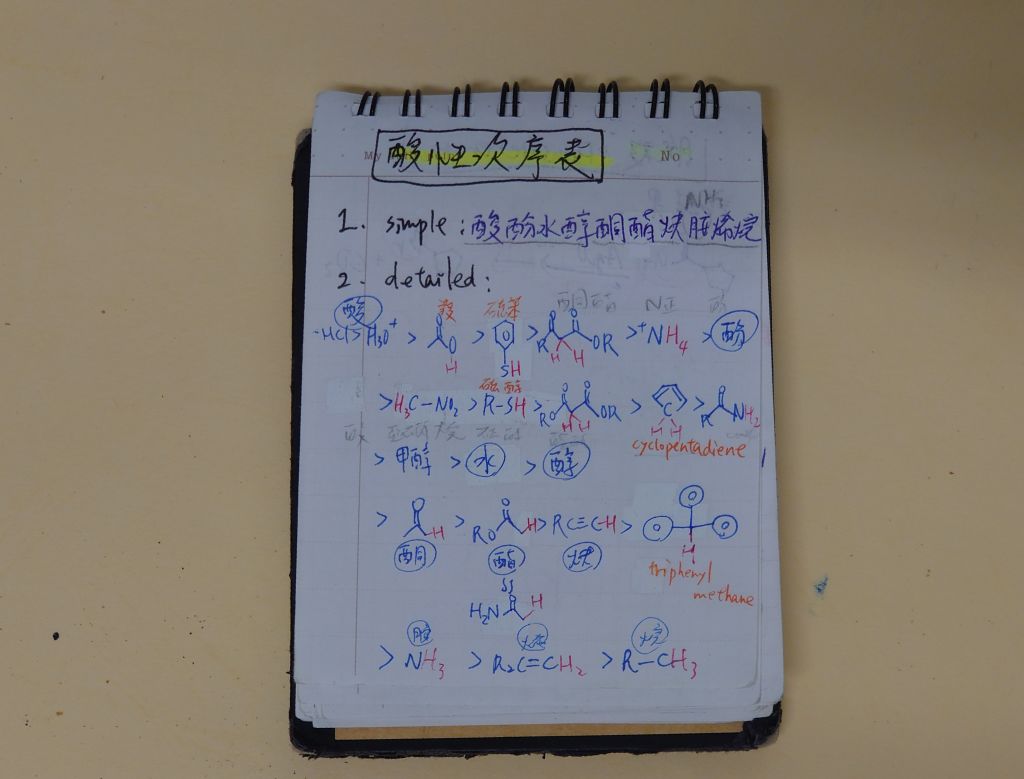 酸性次序表
No
1. simple: 酸酚水醇酮酯炔胺烯烷
NH₃
2. detailed:
酸 羧 硫苯
HCl > H₃O⁺ > O H > SH > R OR H H > ⁺NH₄ > 酚
硫醇
> H₃C-NO₂ > R-SH > RO OR H H > H H > R NH₂
cyclopentadiene
> 甲醇 > 水 > 醇
> H > RO H > R C≡C-H > H
酮 酯 炔
triphenyl
methane
H₂N H
胺 烯 烷
> NH₃ > R₂C=CH₂ > R-CH₃